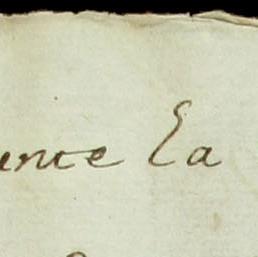 ince La